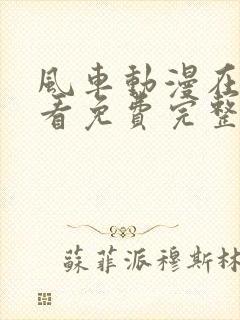 風車動漫在
看免費完整
蘇菲派穆斯林